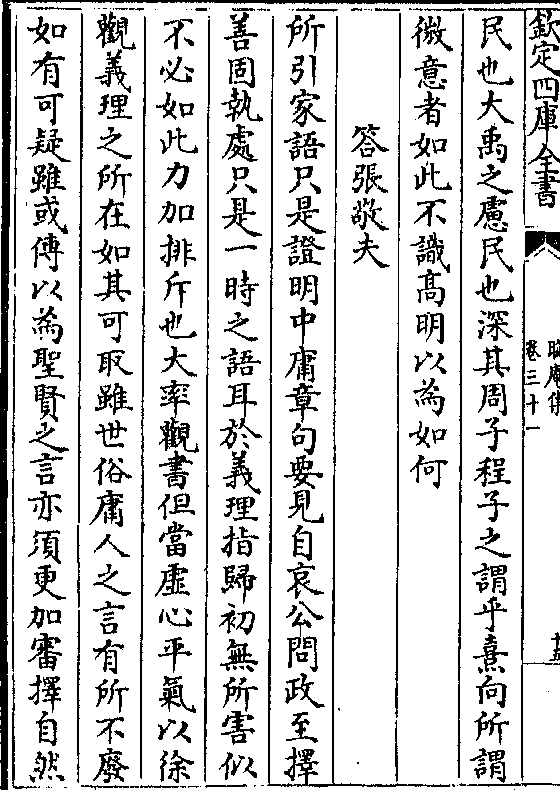 欽定四庫全書
卷三十一
民也大禹之慮民也深其周子程子之謂乎熹向所謂
微意者如此不識髙明以為如何
答張敬夫
所引家語只是證明中庸章句要見自哀公問政至擇
善固執處只是一時之語耳於義理指歸初無所害似
不必如此力加排斥也大率觀書但當虛心平氣以徐
觀義理之所在如其可取雖世俗庸人之言有所不廢
如有可疑雖或傳以為聖賢之言亦須更加審擇自然